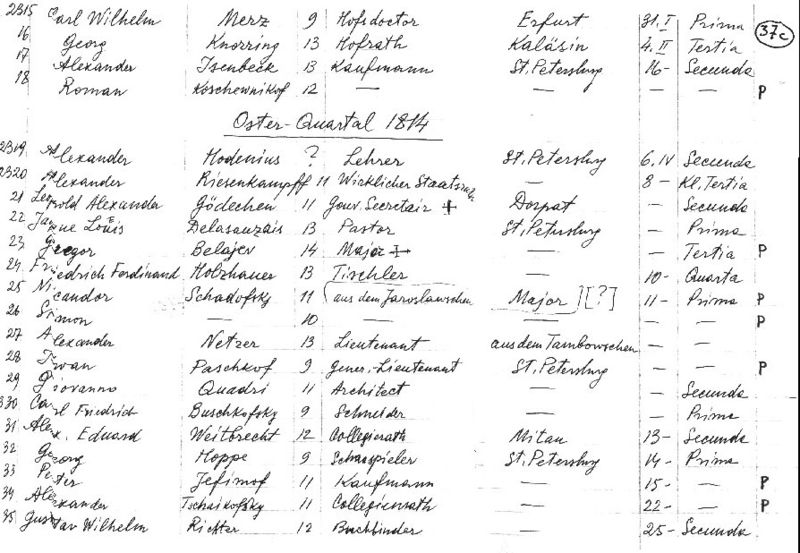 2315 Carl Wilhelm Merz 9 Hofsdoctor Erfurt 31. I Prima
37c
16 Georg Knorring 13 Hofrath Kaläsin 4. II Tertia
17 Alexander Isenbeck 13 Kaufmann St. Petersburg 16- Secunda
18 Roman Koschewnikof 12 — — — — P
Oster-Quartal 1814
2319 Alexander Hodenius ? Lehrer St. Petersburg 6. IV Secunda
2320 Alexander Riesenkampff 11 Wirklicher Staatsrath — 8- Kl. Tertia
21 Leopold Alexander Gödechen 11 Gouv. Secretair + Dorpat — Secunda
22 Jaque Louis Delasauzais 13 Pastor St. Petersburg — Prima
23 Gregor Belajev 14 Major + — — Tertia P
24 Friedrich Ferdinand Holzhauer 13 Tischler — 10- Quarta
25 Nicandor Schadofsky 11 (aus dem Jaroslawschen Major) [?] 11- Prima P
26 Simon — 10 — — — — P
27 Alexander Netzer 13 Lieutenant aus dem Tambowschen — —
28 Iwan Paschkof 9 Gener. Lieutenant St. Petersburg — — P
29 Giovanno Quadri 11 Architect — — Secunda
330 Carl Friedrich Buschkofsky 9 Schneider — — Prima
31 Alex. Eduard Weitbrecht 12 Collegierath Mitau 13- Secunda
32 Georg Hoppe 9 Schauspieler St. Petersburg 14- Prima
33 Peter Jefimof 11 Kaufmann — 15- — P
34 Alexander Tschaikofsky 11 Collegienrath — 22- — P
35 Gustav Wilhelm Richter 12 Buchbinder — 25- Secunda